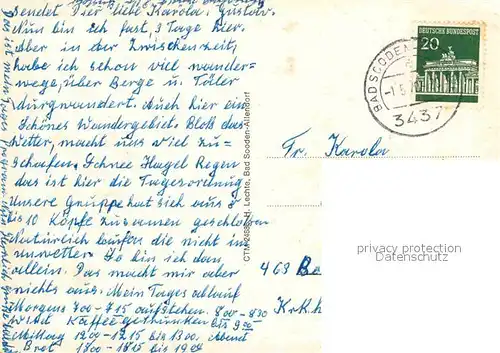 sendet Dir liebe Karola, Gustav.
Nun bin ich fast 3 Tage hier.
Aber in der Zwischenzeit,
habe ich schon viel wander=
wege, über Berge u. Täler
durgwandert. Auch hier ein
Schönes Wandergebiet. Bloß das
Wetter, macht uns viel zu=
schaffen. Schnee Hagel Regen
das ist hier die Tagesordnung
Unsere Gruppe hat sich aus 8
bis 10 Köpfe zusamen geschlossen
Natürlich laufen die nicht im
unwetter. So bin ich dan
allein. Das macht mir aber
nichts aus. Mein Tages ablauf
Morgens 700 - 715 aufstehen. 800 - 830
wird Kaffee getrunken bis 900
Mittag 1200 - 1215 bis 1300. Abend
Brot 1800 - 1815 bis 1900
CTM 24683 H. Lechte, Bad Sooden-Allendorf
DEUTSCHE BUNDESPOST
20
BAD SOODEN
3437
Fr. Karola
463 Bo
privacy protection